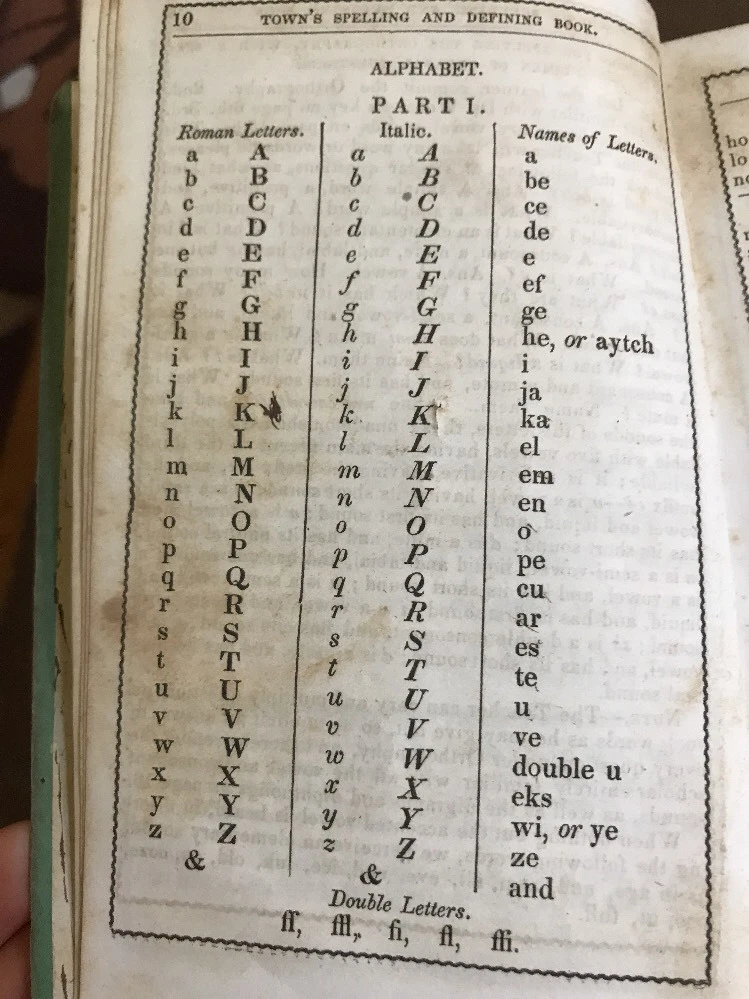 10 TOWN'S SPELLING AND DEFINING BOOK.
ALPHABET.
PART I.
Roman Letters. Italic. Names of Letters.
a A a A a
b B b B be
c C c C ce
d D d D de
e E e E e
f F f F ef
g G g G ge
h H h H he, or aytch
i I i I i
j J j J ja
k K k K ka
l L l L el
m M m M em
n N n N en
o O o O o
p P p P pe
q Q q Q cu
r R r R ar
s S s S es
t T t T te
u U u U u
v V v V ve
w W w W double u
x X x X eks
y Y y Y wi, or ye
z Z z Z ze
& & and
Double Letters.
ff, ffl, fi, fl, ffi.
ho
lo